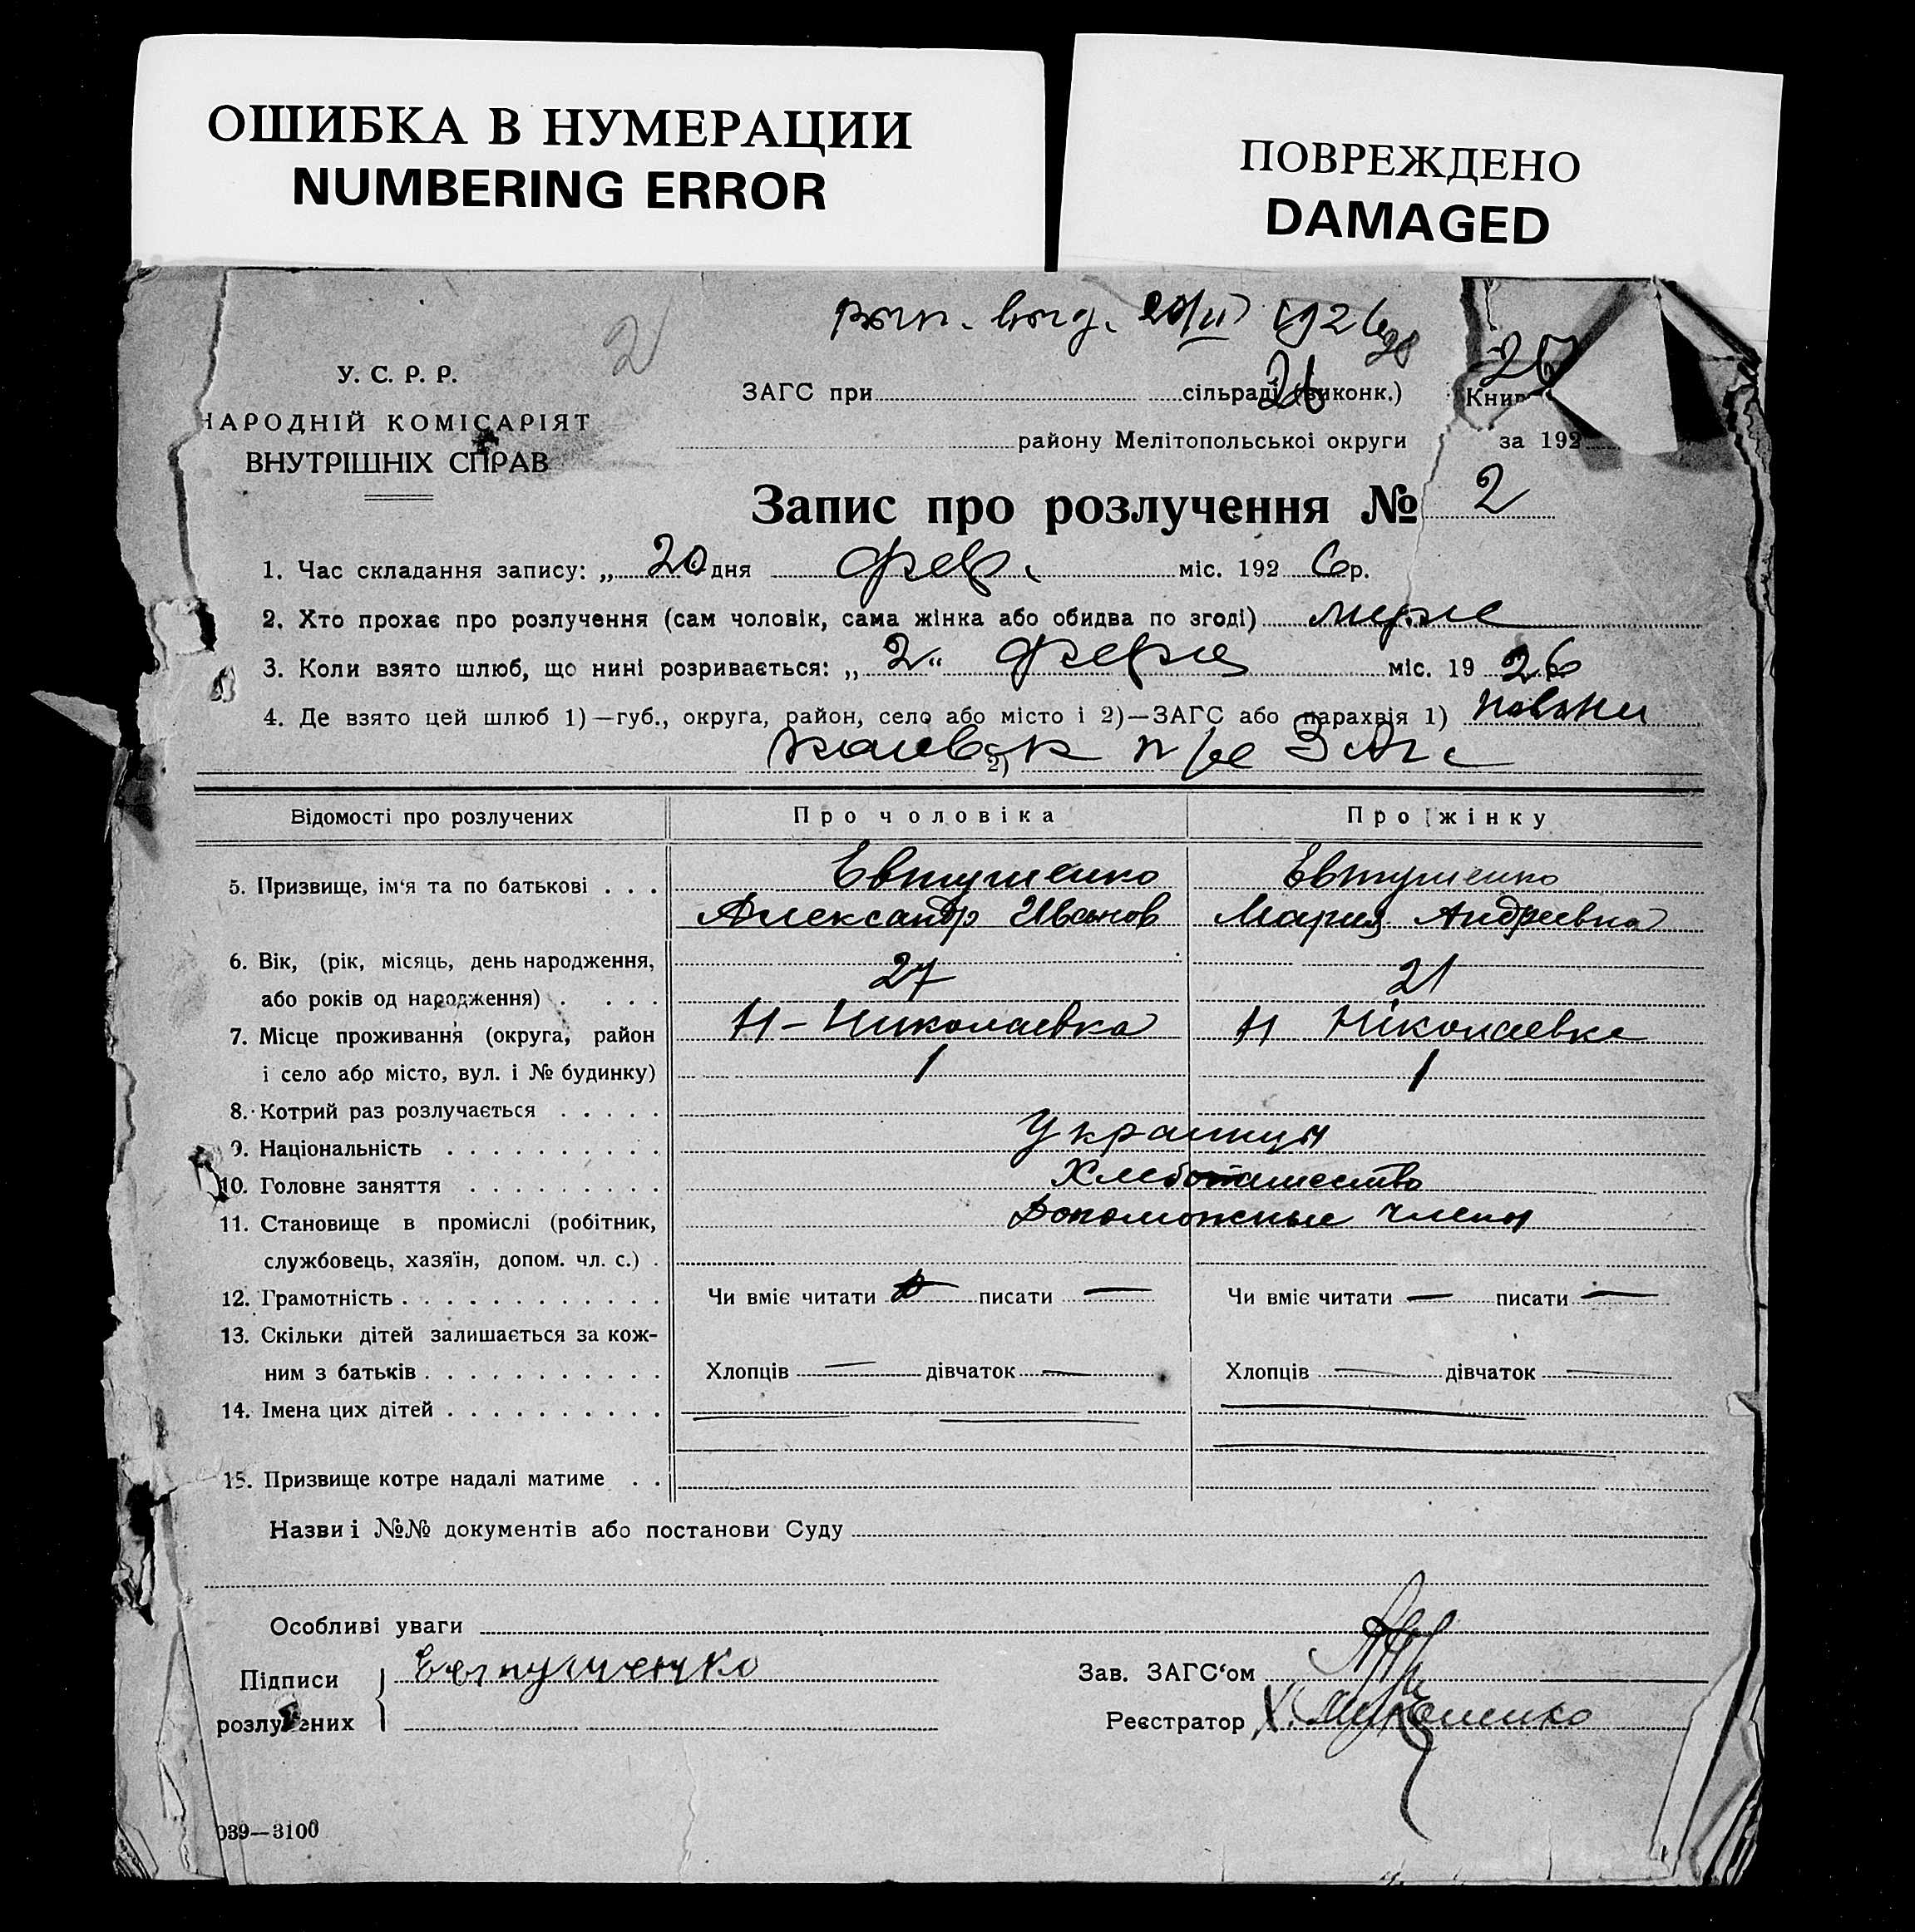 ОШИБКА В НУМЕРАЦИИ
NUMBERING ERROR
ПОВРЕЖДЕНО
DAMAGED
1926
2
28
У. С. Р. Р.
НАРОДНІЙ КОМІСАРІЯТ
ВНУТРІШНІХ СПРАВ
ЗАГС при сільраді (виконк.) 26
Книг 26
району Мелітопольської округи за 192
Запис про розлучення № 2
1. Час складання запису: „ 20 дня февр. міс. 192 6 р.
2. Хто прохає про розлучення (сам чоловік, сама жінка або обидва по згоді)
3. Коли взято шлюб, що нині розривається: „ 2 “ февр міс. 19 26
4. Де взято цей шлюб 1)—губ., округа, район, село або місто і 2)—ЗАГС або парахвія 1)
2) ЗАГС
Відомості про розлучених
Про чоловіка
Про жінку
5. Призвище, ім‘я та по батькові . . . Евтушенко Евтушенко
Александр Иванов Мария Андреевна
6. Вік, (рік, місяць, день народження,
або років од народження) . . . . 27 21
7. Місце проживання (округа, район Н-Николаевка Н Ніколаевка
і село або місто, вул. і № будинку) 1 1
8. Котрий раз розлучається . . . . .
9. Національність . . . . . . . . . . Украинцы
10. Головне заняття . . . . . . . . . Хлебопашество
11. Становище в промислі (робітник, Допоможные члены
службовець, хазяїн, допом. чл. с.) .
12. Грамотність . . . . . . . . . . . . Чи вміє читати — писати — Чи вміє читати — писати —
13. Скільки дітей залишається за кож-
ним з батьків . . . . . . . . . . . Хлопців — дівчаток — Хлопців — дівчаток —
14. Імена цих дітей . . . . . . . . . .
15. Призвище котре надалі матиме . .
Назви і №№ документів або постанови Суду
Особливі уваги
Підписи
розлучених
Евтушенко
Зав. ЗАГС‘ом
Реєстратор
039—3100